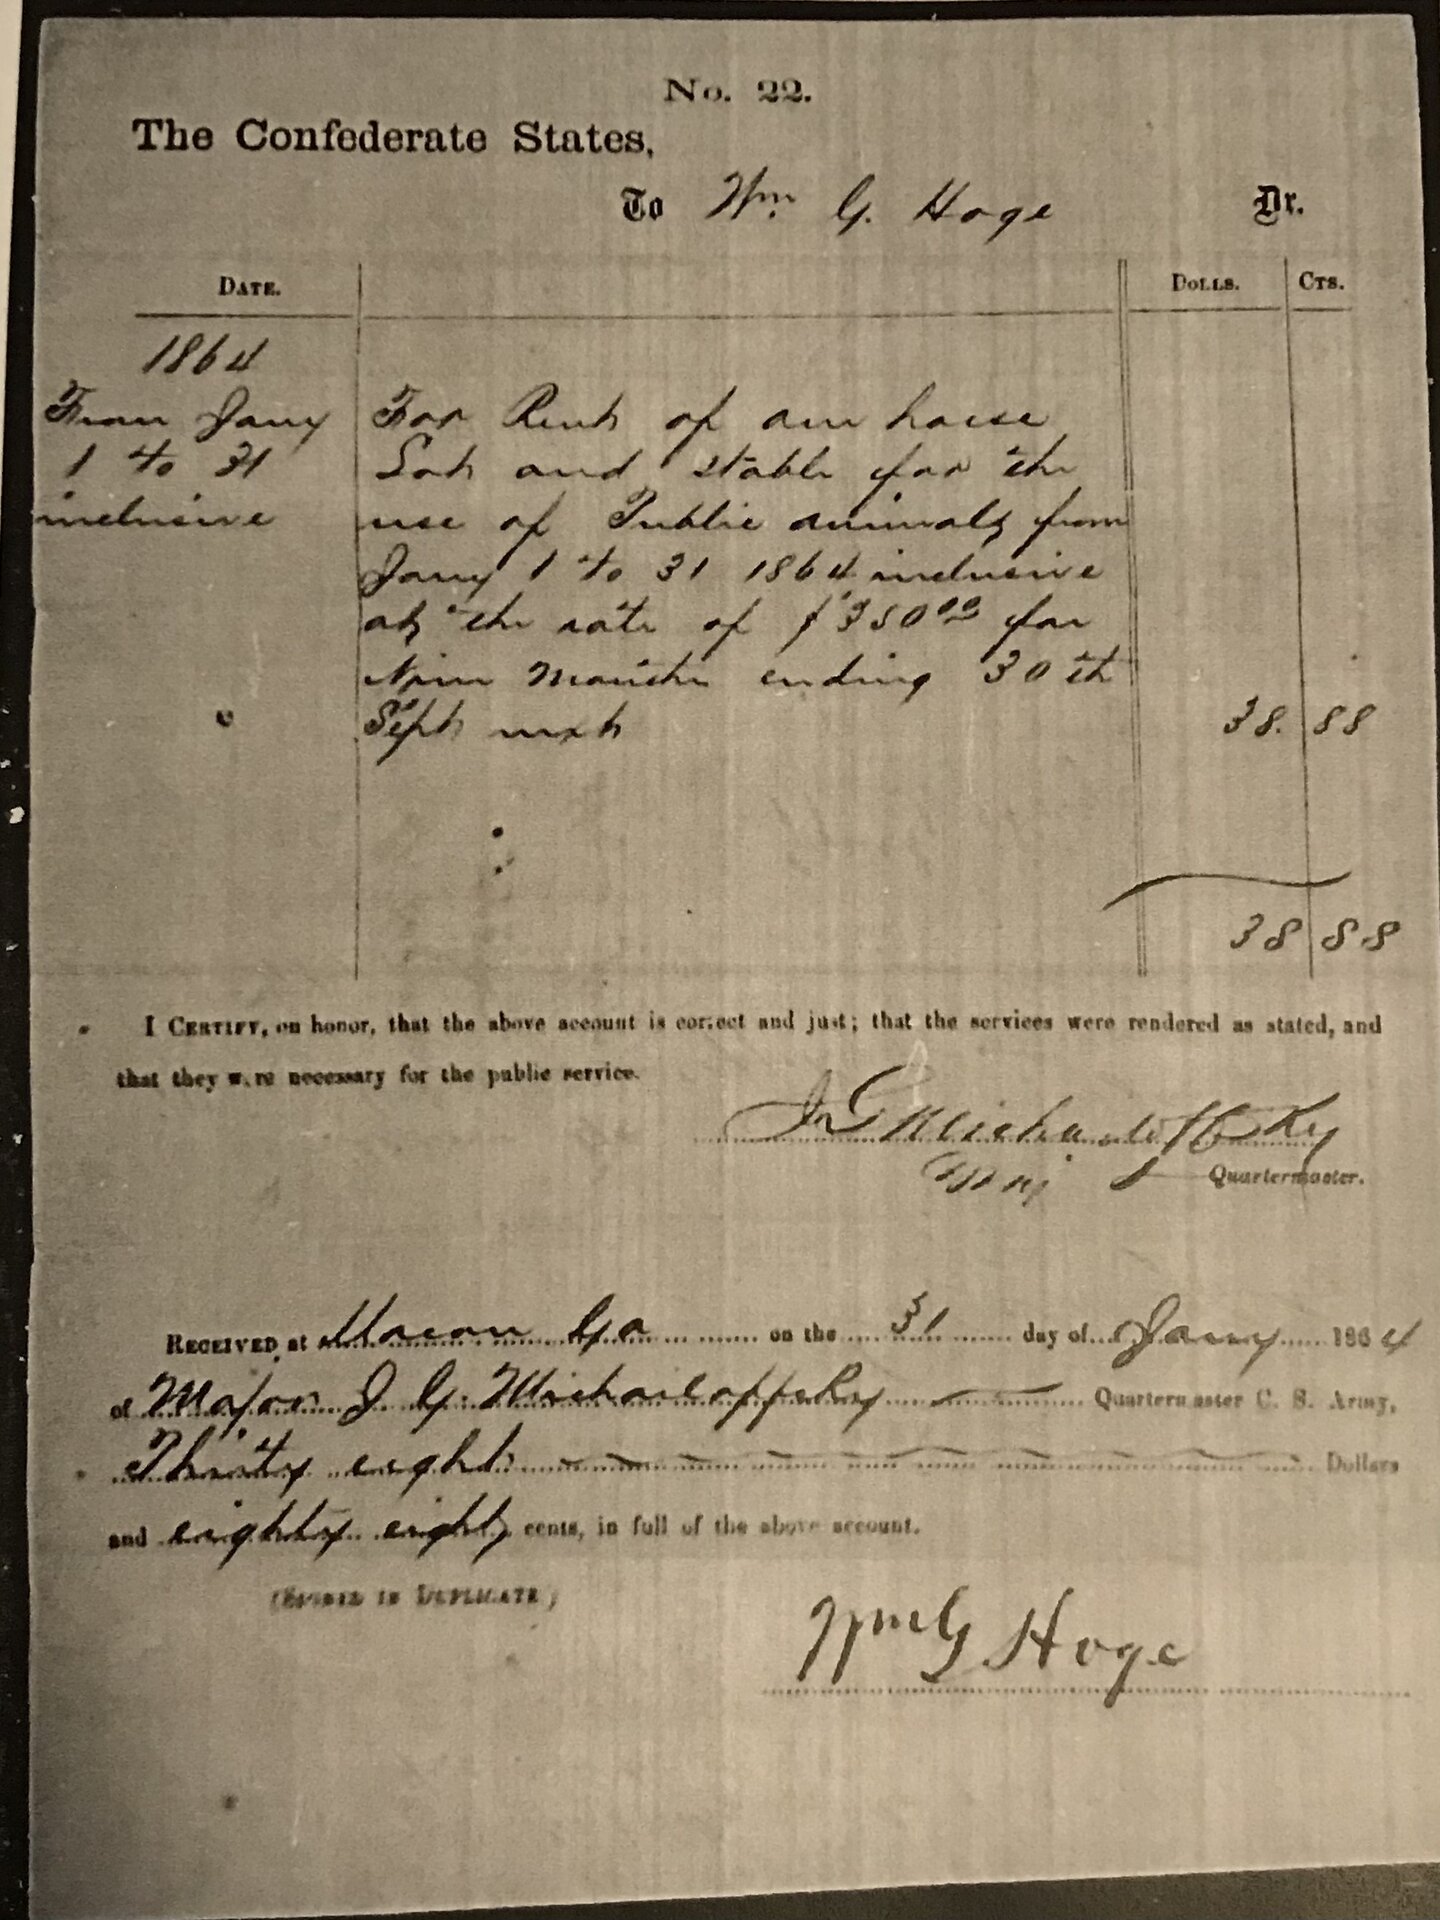 No. 22.
The Confederate States,
To Wm G. Hoge Dr.
DATE. DOLLS. CTS.
1864
From Jany For Rent of one horse
1 to 31 Lot and stable for the
inclusive use of Public animals from
Jany 1 to 31 1864 inclusive
at the rate of $350.00 for
Nine Months ending 30th
Sept next 38. 88
38 88
I CERTIFY, on honor, that the above account is correct and just; that the services were rendered as stated, and
that they were necessary for the public service.
J G Michailoffsky
Maj Quartermaster.
RECEIVED at Macon Ga on the 31 day of Jany 1864
of Major J. G. Michailoffsky Quartermaster C. S. Army,
Thirty eight Dollars
and eighty eight cents, in full of the above account.
(SIGNED IN DUPLICATE)
Wm G Hoge